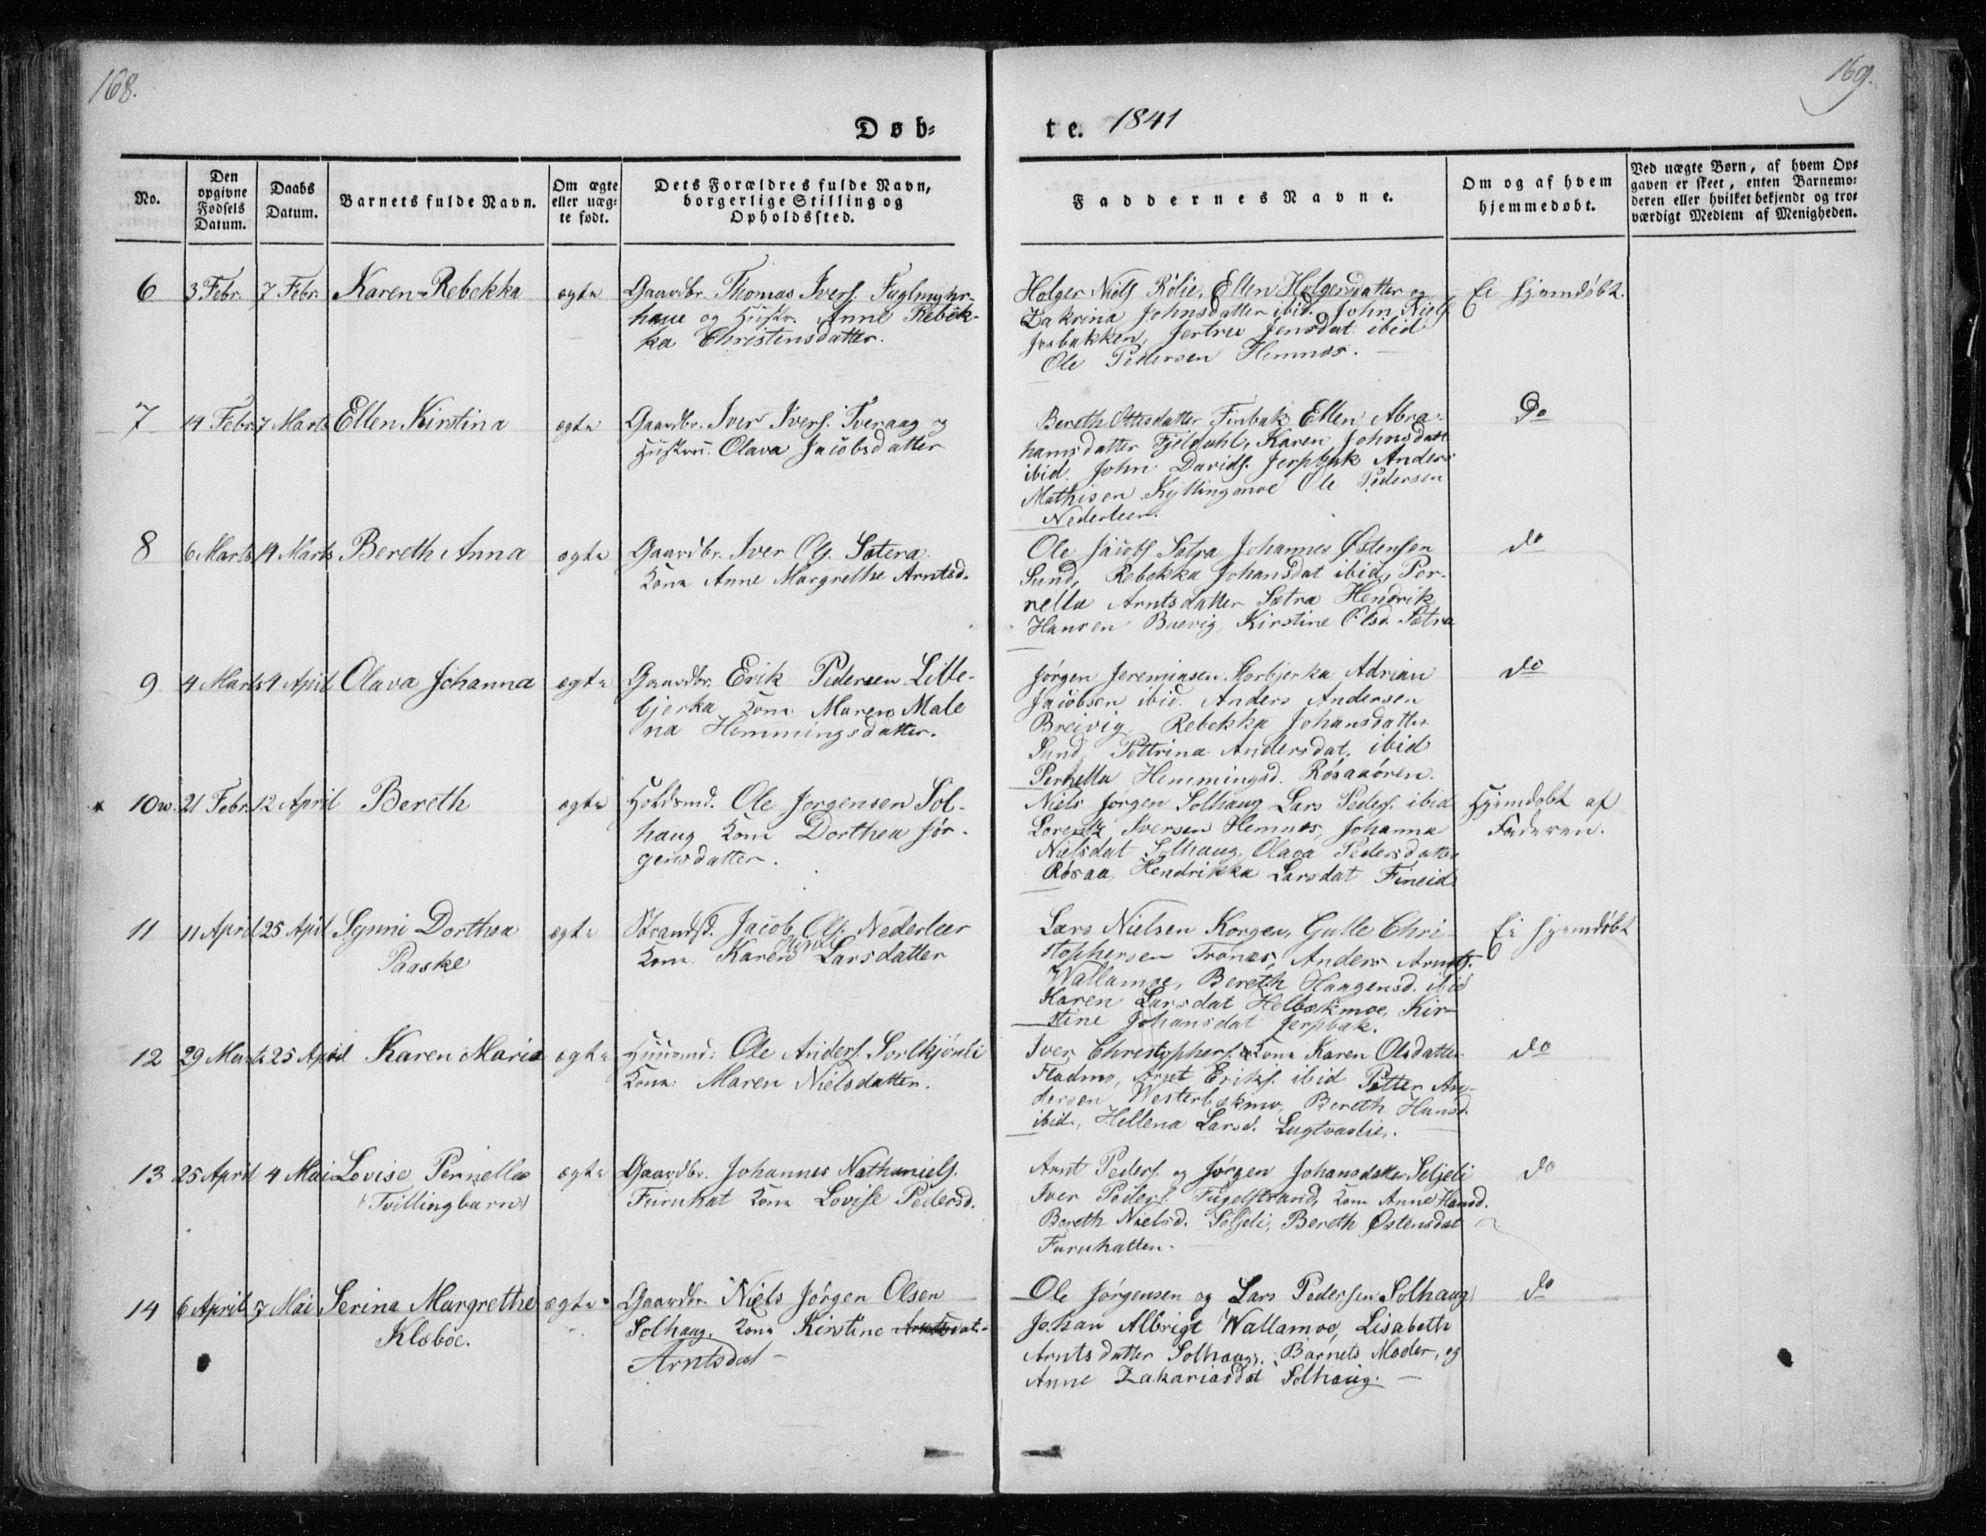 168.
169.
Døb-
te. 1841
No.
Den opgivne Fødsels Datum.
Daabs Datum.
Barnets fulde Navn.
Om ægte eller uægte født.
Dets Forældres fulde Navn, borgerlige Stilling og Opholdssted.
Faddernes Navne.
Om og af hvem hjemmedøbt.
Ved uægte Børn, af hvem Opgaven er skeet, enten Barnemoderen eller hvilket bekjendt og troværdigt Medlem af Menigheden.
6 3 Febr. 7 Febr. Karen Rebekka ægte
Gaardbr. Thomas Ivers.
haue og Hustr. Anne Rebek-
ka Christensdatter.
Holger Niels Rølie, Ellen Holgersdatter og
Zakrina Johnsdatter ibid. John Niels
Jerbakken, Jertru Jensdat ibid
Ole Pedersen Hemnæs.
Ei Hjemdøbt.
7 14 Febr 7 Marts Ellen Kirstina ægte
Gaardbr. Iver Ivers. Tveraag og
Hustru. Olava Jacobsdatter
Bereth Ottesdatter Finbak Ellen Abra-
hamsdatter Fjeldahl, Karen Johnsdatt
ibid. John Davids. Jerpbak Anders
Mathisen Kyllingmoe Ole Pedersen
Nederleer.
Do
8 6 Marts 14 Marts Bereth Anna ægte
Gaardbr. Iver Ols. Sætera.
Kone Anne Margrethe Arntsd.
Ole Jacobs Sætra Johannes Østensen
Sund, Rebekka Johansdat ibid, Per-
nella Arntsdatter Sætra Hendrik
Hansen Buevig, Kirstine Olsd. Sætra
do
9 4 Marts 4 April Olava Johanna ægte
Gaardbr. Erik Pedersen Litle-
bjerka Kone Maren Male
na Hemmingsdatter.
Jørgen Jeremiasen Storbjerka Adrian
Jacobsen ibid. Anders Andersen
Breivig Rebekka Johansdatter
Sund, Pettrina Andersdat. ibid
Pernella Hemmingsd. Røsaaøren.
do
10 21 Febr 12 April Bereth ægte
Holdsmd. Ole Jørgensen Sol-
haug Kone Dorthea Jør-
gensdatter.
Niels Jørgen Solhaug Lars Peders. ibid
Lorentz Iversen Hemnæs, Johanna
Nielsdat Solhaug, Olava Pedersdatter
Røsaa, Hendrikka Larsdat Fineid
Hjemdøbt af
Faderen.
11 11 April 25 April Synni Dorthea
Paaske
ægte
Strands. Jacob Ols. Nederleer
Kone Karen Larsdatter
Lars Nielsen Korgen, Gulle Chri
stophersen Tronæs, Anders Arnts.
Wallamoe, Bereth Haagensd. ibid
Karen Larsdat Helbekmoe, Kir-
stine Johansdat Jerpbak.
Ei Hjemdøbt
12 29 Marts 25 April Karen Maria ægte
Huusmd: Ole Anders.
Kone Maren Nielsdatter.
Iver Christophers. Kone Karen Olsdatter
Fladmo, Arnt Eriks. ibid Petter An-
dersen Westerbekmo, Bereth Hansd.
ibid., Hellena Larsd. Lugtvaslie.
do
13 25 April 4 Mai Lovise Pernella
(Tvillingbarn)
ægte
Gaardbr. Johannes Nathaniels.
Furuhat Kone Lovise Pedersd.
Arnt Peders. og Jørgen Johansdatter Seljeli
Iver Peders. Fugelstrand, Kone Anne Hansd.
Bereth Nielsd. Seljeli, Bereth Østensdat
Furuhatten.
do
14 6 April 7 Mai Serina Margrethe
Klæboe.
ægte
Gaardbr. Niels Jørgen Olsen
Solhaug. Kone Kirstine Arntsdat.
Arntsdat
Ole Jørgensen og Lars Pedersen Solhaug
Johan Albrigt Wallamoe, Lisabeth
Arntsdatter Solhaug, Barnets Moder, og
Anne Zakariasdat Solhaug.
do